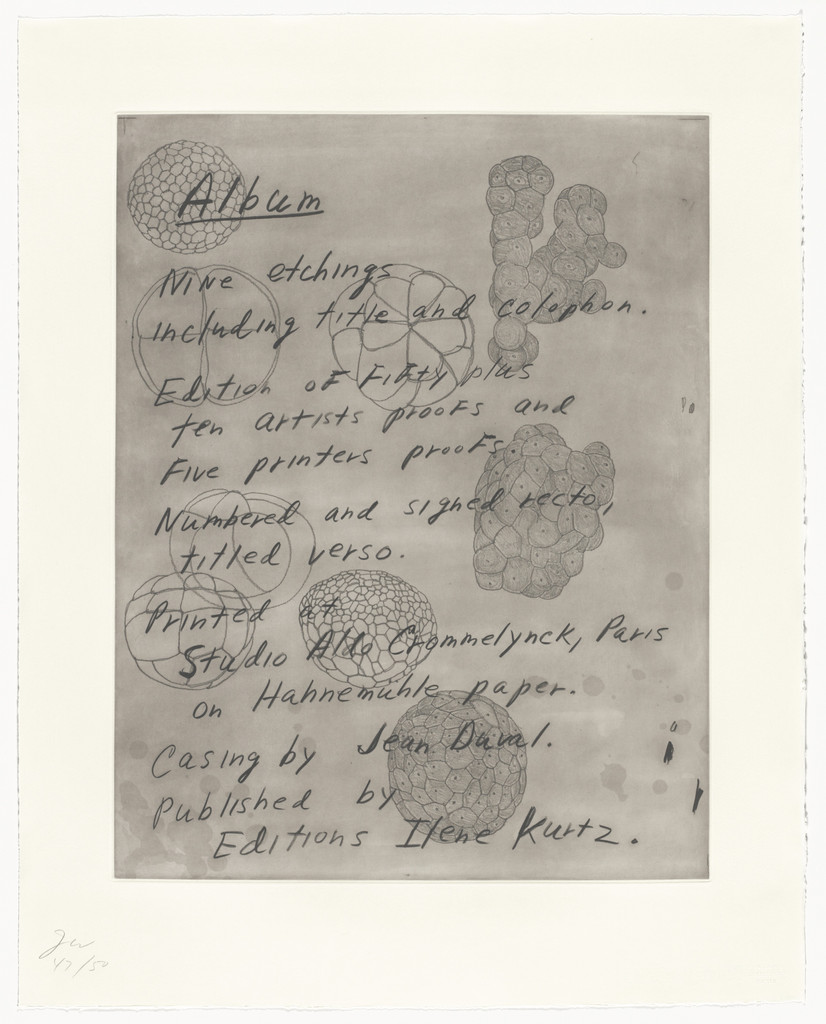 Album
Nine etchings
including title and colophon.
Edition of Fifty plus
ten artists proofs and
Five printers proofs
Numbered and signed recto,
titled verso.
Printed at
Studio Aldo Crommelynck, Paris
on Hahnemühle paper.
Casing by Jean Duval.
Published by
Editions Ilene Kurtz.
47/50